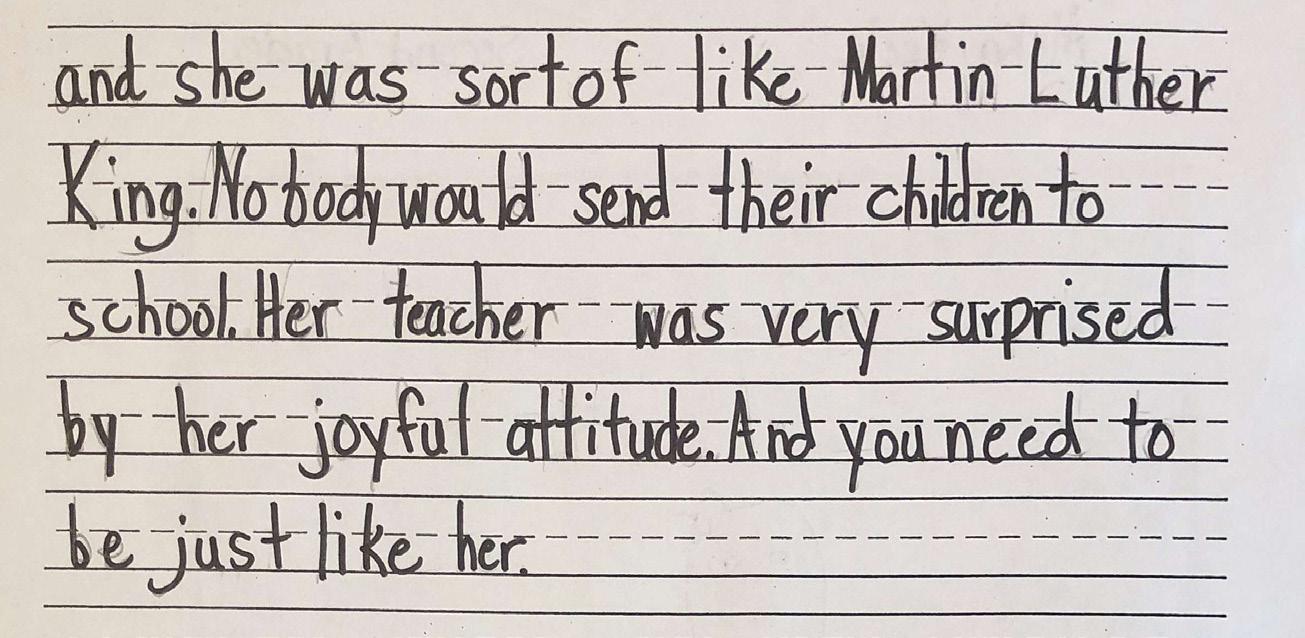 and she was sort of like Martin Luther
King. Nobody would send their children to
school. Her teacher was very surprised
by her joyful attitude. And you need to
be just like her.